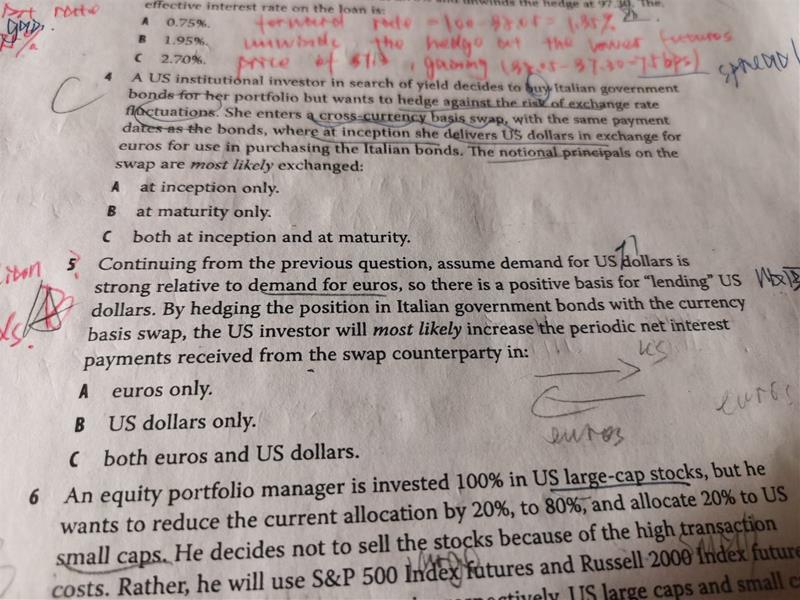 effective interest rate on the loan is:
A 0.75%.
B 1.95%.
C 2.70%.
forward rate = 100 - 98.05 = 1.95%
unwinds the hedge at the lower futures
price of
gaining
spread
4 A US institutional investor in search of yield decides to buy Italian government
bonds for her portfolio but wants to hedge against the risk of exchange rate
fluctuations. She enters a cross-currency basis swap, with the same payment
dates as the bonds, where at inception she delivers US dollars in exchange for
euros for use in purchasing the Italian bonds. The notional principals on the
swap are most likely exchanged:
A at inception only.
B at maturity only.
C both at inception and at maturity.
C
5 Continuing from the previous question, assume demand for US dollars is
strong relative to demand for euros, so there is a positive basis for “lending” US
dollars. By hedging the position in Italian government bonds with the currency
basis swap, the US investor will most likely increase the periodic net interest
payments received from the swap counterparty in:
A euros only.
B US dollars only.
C both euros and US dollars.
US
euros
euros
6 An equity portfolio manager is invested 100% in US large-cap stocks, but he
wants to reduce the current allocation by 20%, to 80%, and allocate 20% to US
small caps. He decides not to sell the stocks because of the high transaction
costs. Rather, he will use S&P 500 Index futures and Russell 2000 Index future
US large caps and small